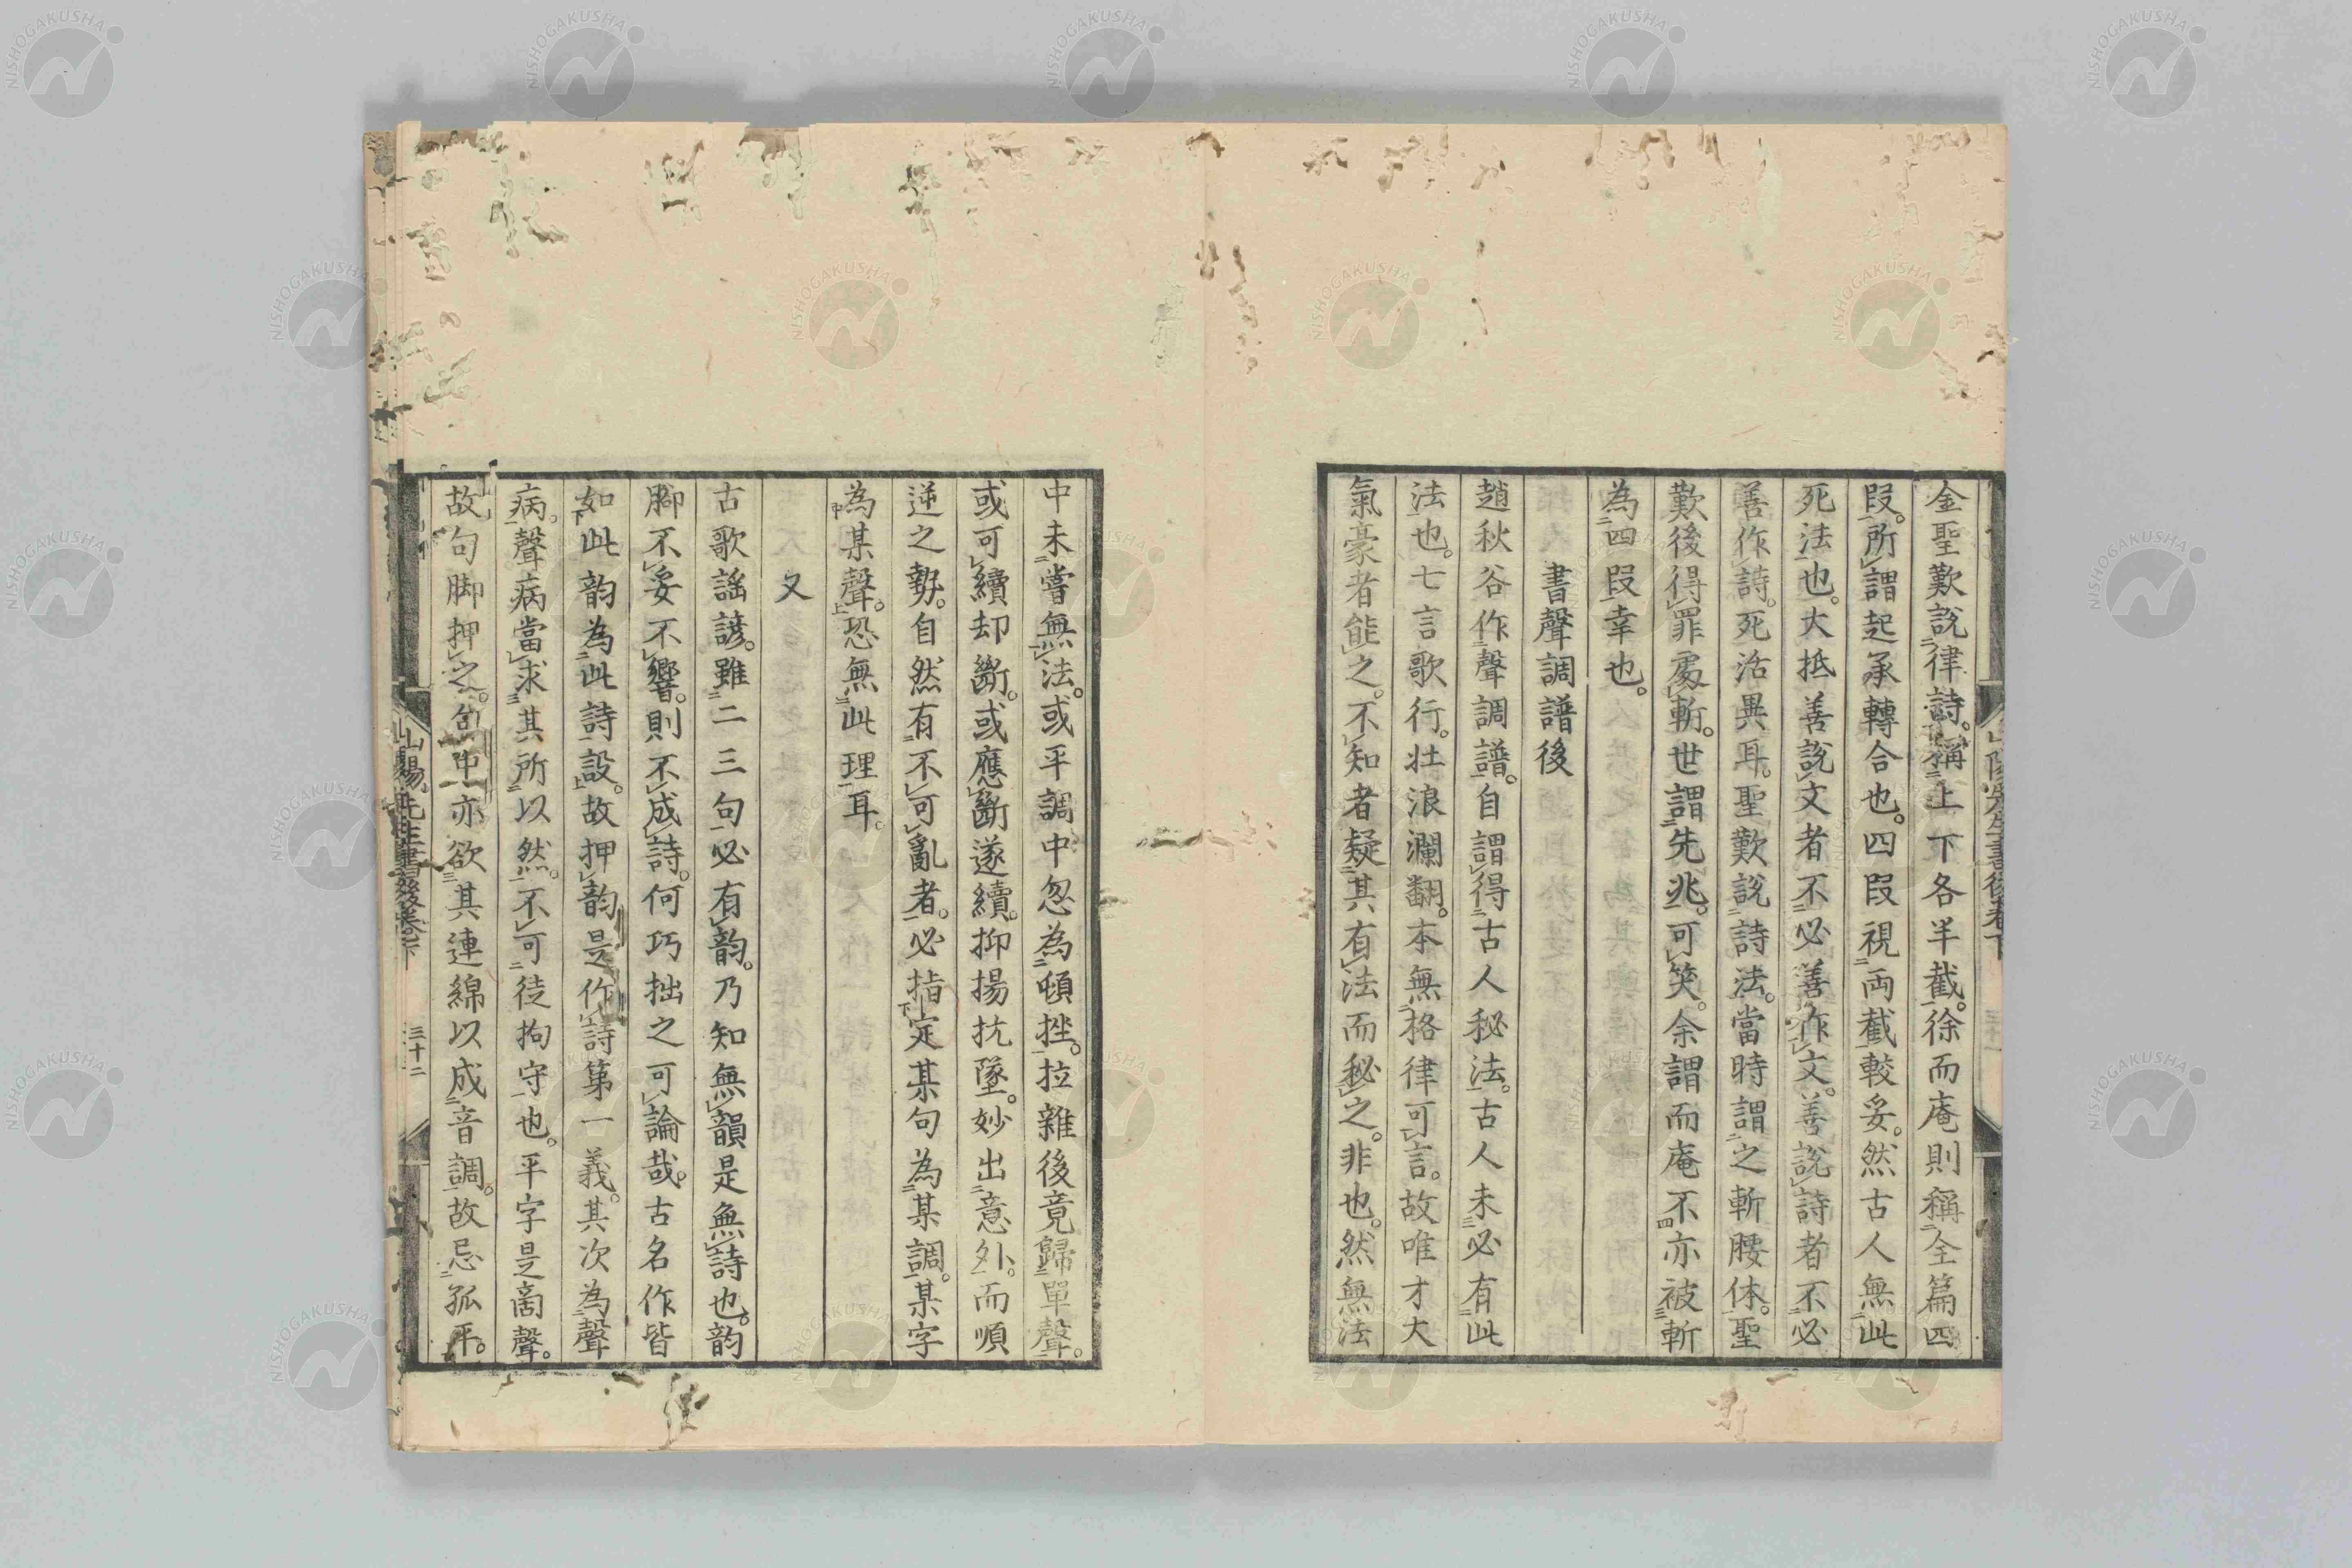 金聖歎說律詩。稱上下各半截。徐而庵則稱全篇四
段。所謂起承轉合也。四段視両截較妥。然古人無此
死法也。大抵善說文者不必善作文。善說詩者不必
善作詩。死活異耳。聖歎說詩法。當時謂之斬腰体。聖
歎後得罪處斬。世謂先兆。可笑。余謂而庵不亦被斬
為四段幸也。
書聲調譜後
趙秋谷作聲調譜。自謂得古人秘法。古人未必有此
法也。七言歌行。壮浪瀾翻。本無格律可言。故唯才大
氣豪者能之。不知者疑其有法而秘之。非也。然無法
中未嘗無法。或平調中忽為頓挫。拉雜後竟歸單聲。
或可續却斷。或應斷遂續。抑揚抗墜。妙出意外。而順
逆之勢。自然有不可亂者。必指定某句為某調。某字
為某聲。恐無此理耳。
又
古歌謡諺。雖二三句必有韵。乃知無韻是無詩也。韵
脚不妥不響。則不成詩。何巧拙之可論哉。古名作皆
如此韵為此詩設。故押韵是作詩第一義。其次為聲
病。聲病當求其所以然。不可徒拘守也。平字是啇聲。
故句脚押之。句中亦欲其連綿以成音調。故忌孤平。
山陽先生書後卷下
三十二
NISHOGAKUSHA